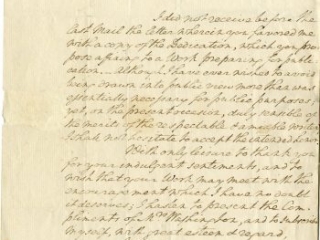 I did not receive before the
last Mail the letter wherein you favored me
with a copy of the Dedication, which you pro
pose affixing to a Work preparing for publi
cation.— Although I have ever wished to avoid
being drawn into public view more than was
essentially necessary for public purposes;
yet, on the present occasion, duly sensible of
the merits of the respectable & amiable writer
I shall not hesitate to accept the intended honor.
With only leisure to thank you
for your indulgent sentiments, and to
wish that your Work may meet with the
encouragement which I have no doubt
it deserves, I hasten to present the Com
pliments of Mrs Washington, and to subscribe
myself, with great esteem & regard,